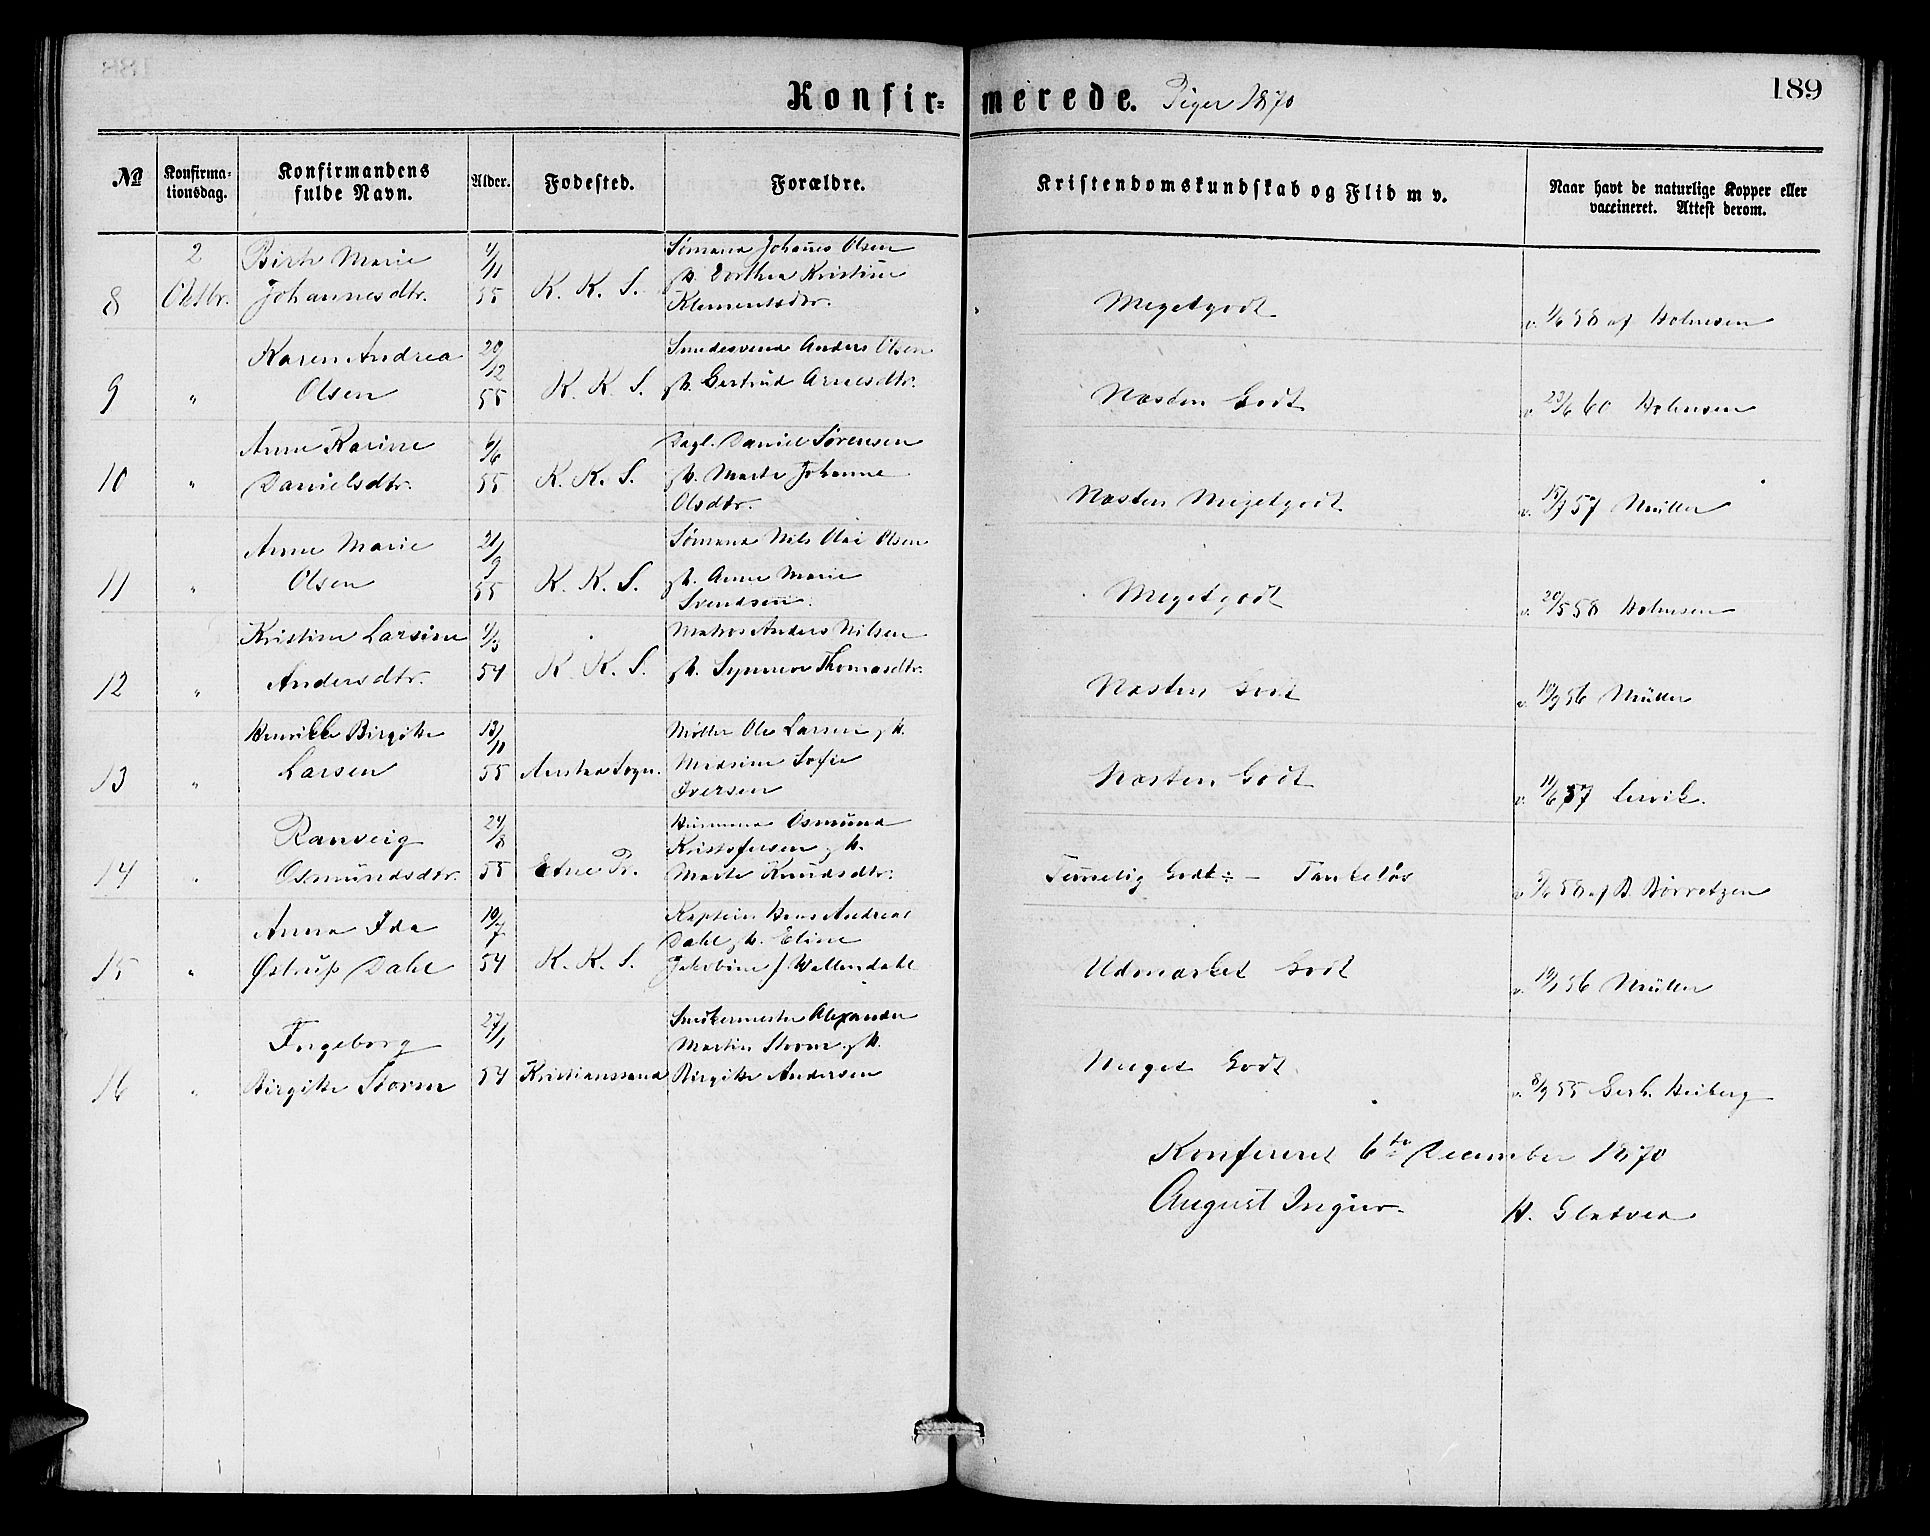 Konfirmerede. Piger 1870
189
№
Konfirma-
tionsdag.
Konfirmandens
fulde Navn.
Alder.
Fodested.
Forældre.
Kristendomskundskab og Flid m v.
Naar havt de naturlige Kopper eller
vaccineret. Attest derom.
8
2
Oktbr.
Birte Marie
Johannesdtr.
4/11
55
K. K. S.
Sømand Johanes Olsen
og H. Dorthea Kristine
Klementsdtr.
Megetgodt
v. 1/6 58 af Holmsen
9
"
Karen Andrea
Olsen
20/12
55
K. K. S.
Smedesvend Anders Olsen
og H. Gertrud Arnesdtr.
Næsten Godt
v. 23/6 60 Holmsen
10
"
Anne Karine
Danielsdtr.
6/6
55
K. K. S.
Dagl. Daniel Sørensen
og H. Marte Johanne
Olsdtr.
Næsten Megetgodt
v. 15/9 57 Müller
11
"
Anne Marie
Olsen
21/9
55
K. K. S.
Sømand Nils Olai Olsen
og H. Anne Marie
Svendsen.
Megetgodt
v. 20/5 58 Holmsen
12
"
Kristine Larsine
Andersdtr.
4/3
54
K. K. S.
Matros Anders Nilsen
og H. Synneve Thomasdtr.
Næsten Godt
v. 19/9 56 Müller
13
"
Henrikke Birgitte
Larsen
13/10
55
Sogn.
Møller Ole Larsen og H.
Sofie
Iversen
Næsten Godt
v. 11/6 57
14
"
Ranveig
Osmundsdtr.
24/8
55
Etne Pr.
Husmand Osmund
Kristofersen og H.
Marte Knudsdtr.
Temmelig Godt ÷ — Tankeløs
58 af
15
"
Anna Ida
Østrup Dahl
19/7
54
K. K. S.
Kaptein Hans Andreas
Dahl og H. Eline
Jakobine f Wallendahl
Udmærket Godt
v. 19/1 56 Müller
16
"
Ingeborg
Birgitte Storm
27/1
54
Kristianssand
Alexander
Martin Storm og H.
Birgitte Andersen
Meget Godt
v. 8/9 55 Gerh. Heiberg
Konfereret 6te December 1870
August Ingier
H. Gletved